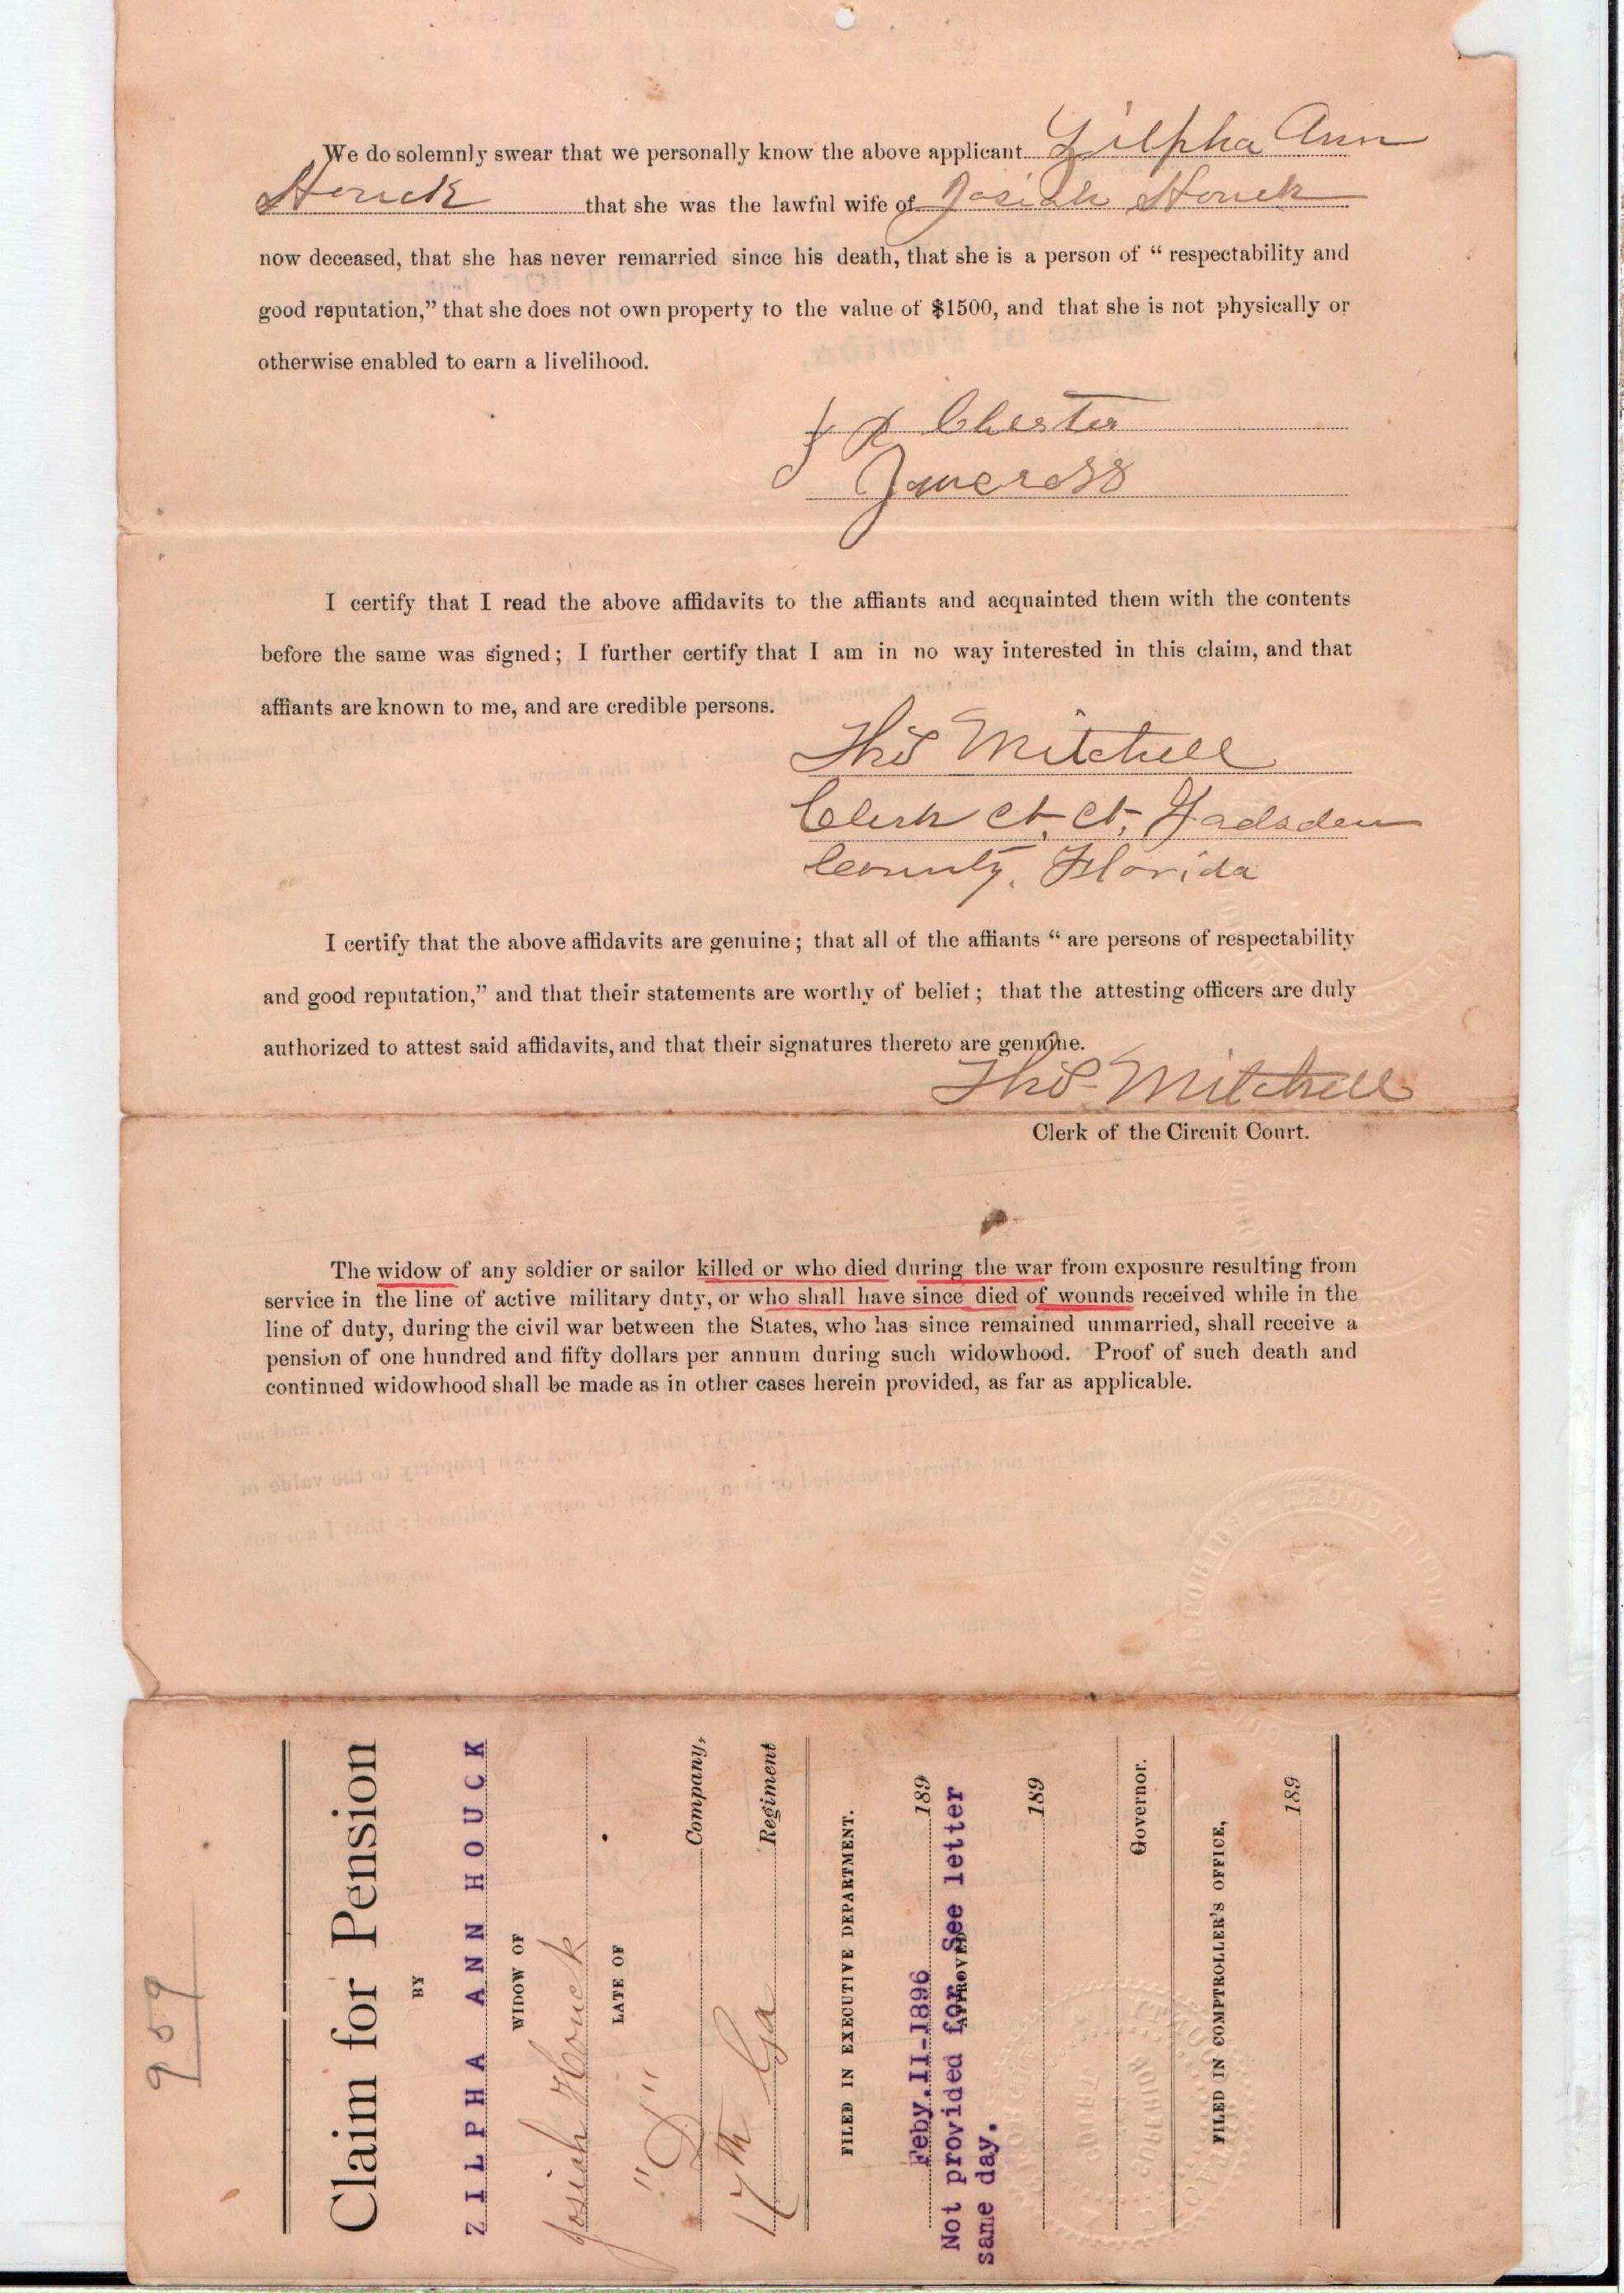 We do solemnly swear that we personally know the above applicant Zilpha Ann
Houck that she was the lawful wife of Josiah Houck
now deceased, that she has never remarried since his death, that she is a person of “ respectability and
good reputation,” that she does not own property to the value of $1500, and that she is not physically or
otherwise enabled to earn a livelihood.
Chester
I certify that I read the above affidavits to the affiants and acquainted them with the contents
before the same was signed; I further certify that I am in no way interested in this claim, and that
affiants are known to me, and are credible persons.
Thos Mitchell
Clerk Ct. Ct. Gadsden
County, Florida
I certify that the above affidavits are genuine; that all of the affiants “ are persons of respectability
and good reputation,” and that their statements are worthy of belief; that the attesting officers are duly
authorized to attest said affidavits, and that their signatures thereto are genuine.
Thos Mitchell
Clerk of the Circuit Court.
The widow of any soldier or sailor killed or who died during the war from exposure resulting from
service in the line of active military duty, or who shall have since died of wounds received while in the
line of duty, during the civil war between the States, who has since remained unmarried, shall receive a
pension of one hundred and fifty dollars per annum during such widowhood. Proof of such death and
continued widowhood shall be made as in other cases herein provided, as far as applicable.
959
Claim for Pension
BY
ZILPHA ANN HOUCK
WIDOW OF
Josiah Houck
LATE OF
"D" Company,
17th Ga Regiment
FILED IN EXECUTIVE DEPARTMENT.
Feby.II-1896 189
APPROVED
Not provided for See letter
same day.
189
Governor.
FILED IN COMPTROLLER'S OFFICE,
189